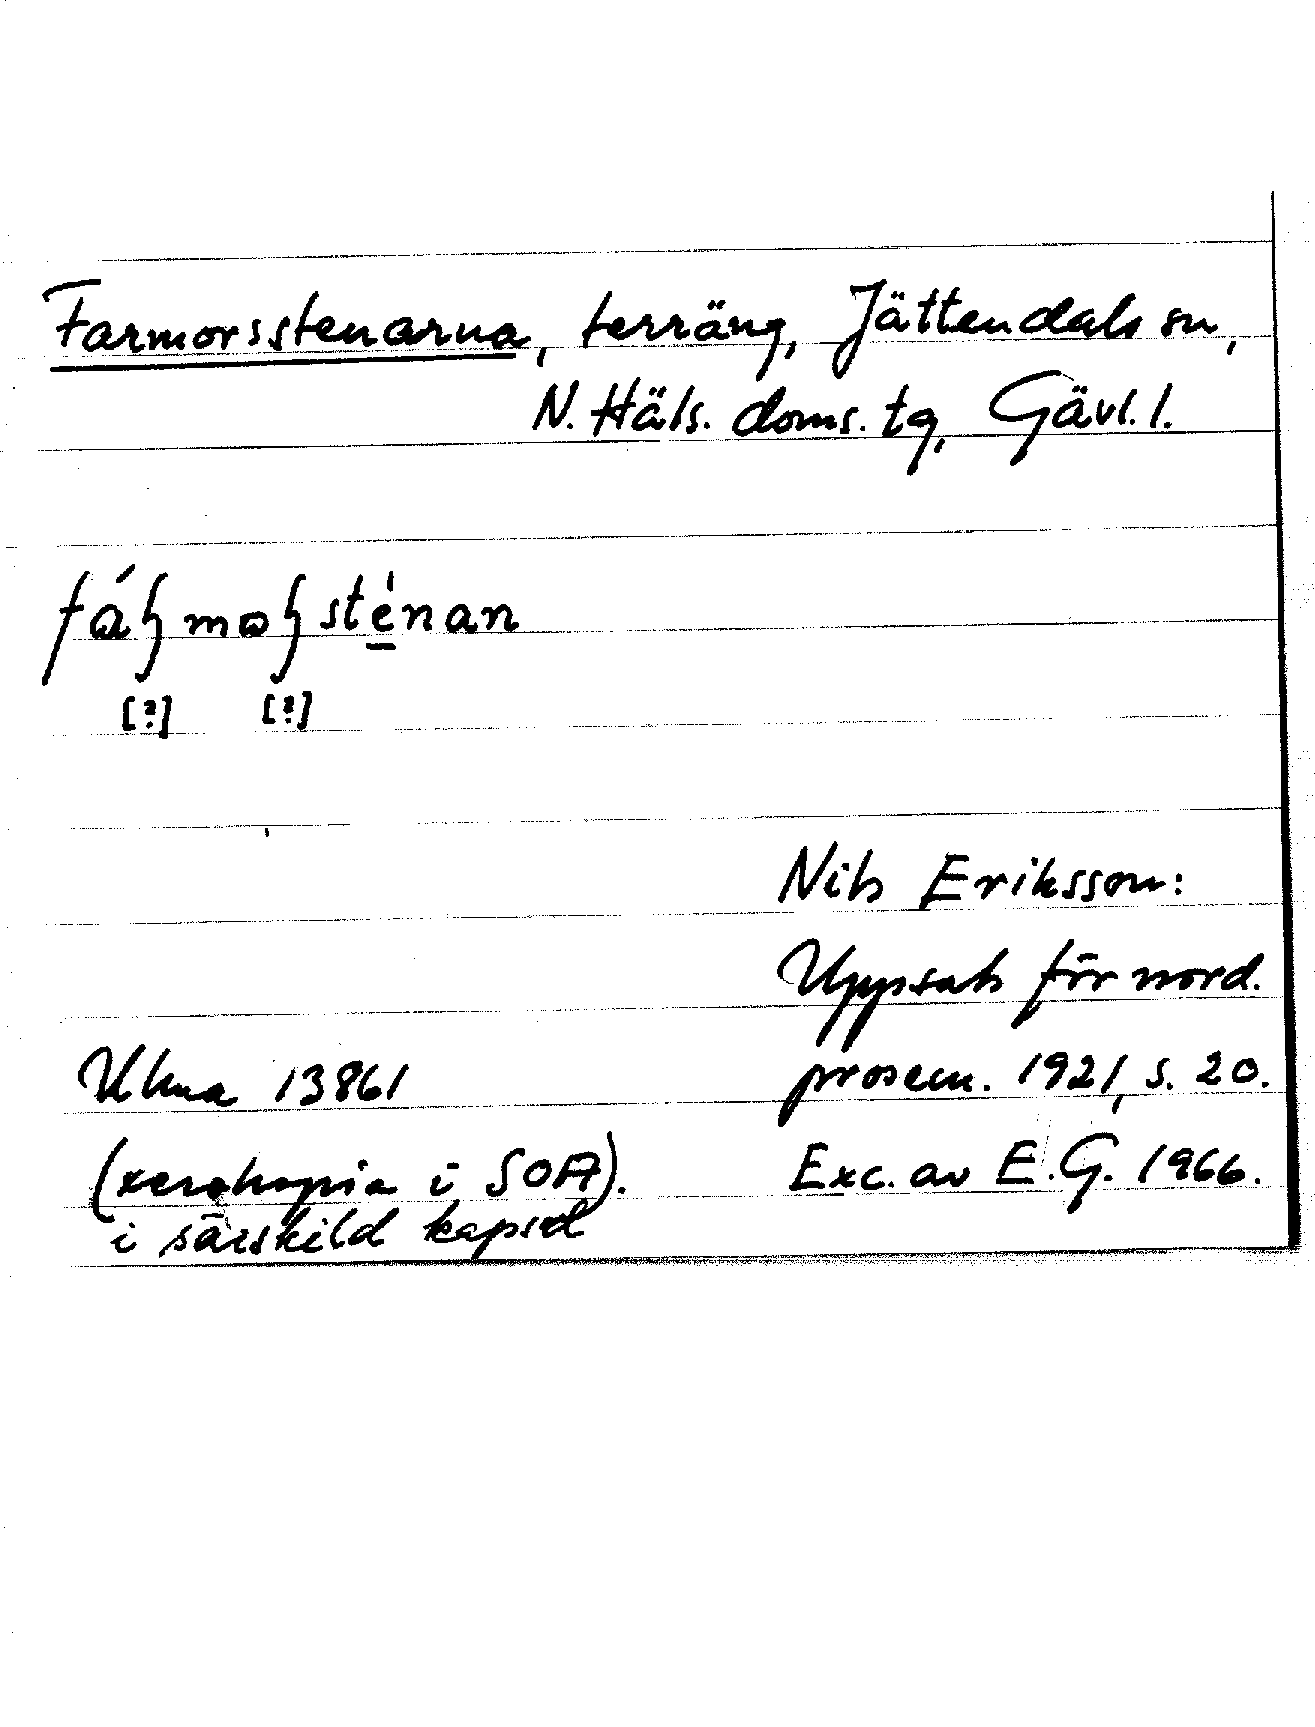 Farmorsstenarna, terräng, Jättendals sn,
N. Häls. doms. tg, Gävl. l.
stenan
[?] [?]
Nils Eriksson:
Uppsats för nord.
Ulma 13861 prosem. 1921, s. 20.
(xerokopia i SOA). Exc. av E. G. 1966.
i särskild kapsel